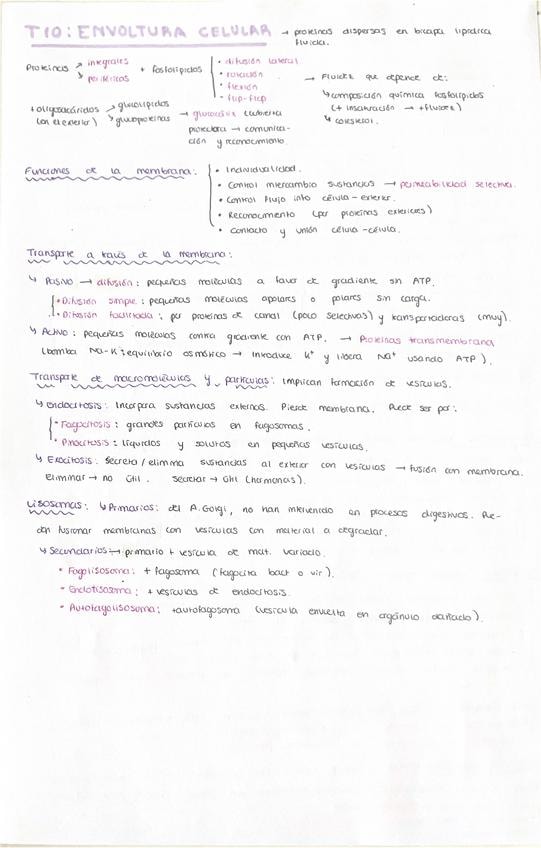 T10: ENVOLTURA CELULAR → proteínas dispersas en bicapa lipídica fluida.
Proteínas → integrales
→ periféricas
+ fosfolípidos
• difusión lateral
• rotación
• flexión
• flip-flop
→ Fluidez que depende de:
↳ composición química fosfolípidos
(+ insaturación → +fluidez)
↳ colesterol.
+ oligosacáridos → glucolípidos
(en el exterior) → glucoproteínas
→ glucocálix (cubierta
protectora → comunica-
ción y reconocimiento.
Funciones de la membrana:
• Individualidad.
• Control intercambio sustancias → permeabilidad selectiva.
• Control flujo info célula-exterior.
• Reconocimiento (por proteínas exteriores)
• Contacto y unión célula-célula.
Transporte a través de la membrana:
↳ Pasivo → difusión: pequeñas moléculas a favor de gradiente sin ATP.
• Difusión simple: pequeñas moléculas apolares o polares sin carga.
• Difusión facilitada: por proteínas de canal (poco selectivas) y transportadoras (muy).
↳ Activo: pequeñas moléculas contra gradiente con ATP. → Proteínas transmembrana
(bomba Na-K: equilibrio osmótico → introduce K⁺ y libera Na⁺ usando ATP).
Transporte de macromoléculas y partículas: Implican formación de vesículas.
↳ Endocitosis: Incorpora sustancias externas. Pierde membrana. Puede ser por:
• Fagocitosis: grandes partículas en fagosomas.
• Pinocitosis: líquidos y solutos en pequeñas vesículas.
↳ Exocitosis: Secreta/elimina sustancias al exterior con vesículas → fusión con membrana.
Eliminar → no útil. secretar → útil (hormonas).
Lisosomas: ↳ Primarios: del A. Golgi, no han intervenido en procesos digestivos. Pue-
den fusionar membranas con vesículas con material a degradar.
↳ Secundarios → primario + vesícula de mat. variado.
• Fagolisosoma: + fagosoma (fagocita bact o vir).
• Endolisosoma: + vesículas de endocitosis.
• Autofagolisosoma: + autofagosoma (vesícula envuelta en orgánulo dañado).